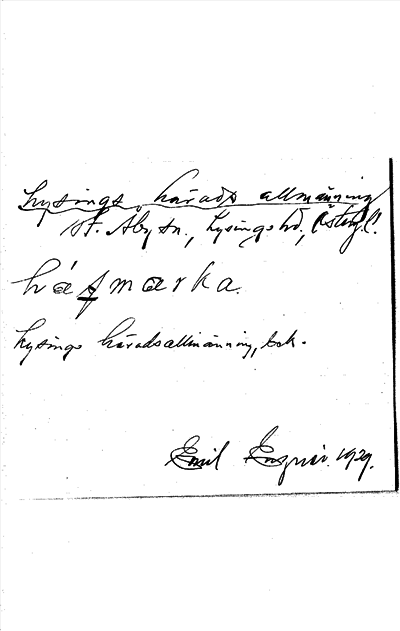 Lysings härads allmänning
St. Åby sn., Lysings hd, Östergl.
há̱ʃmarka.
Lysings häradsallmänning, bok.
Emil 1929.